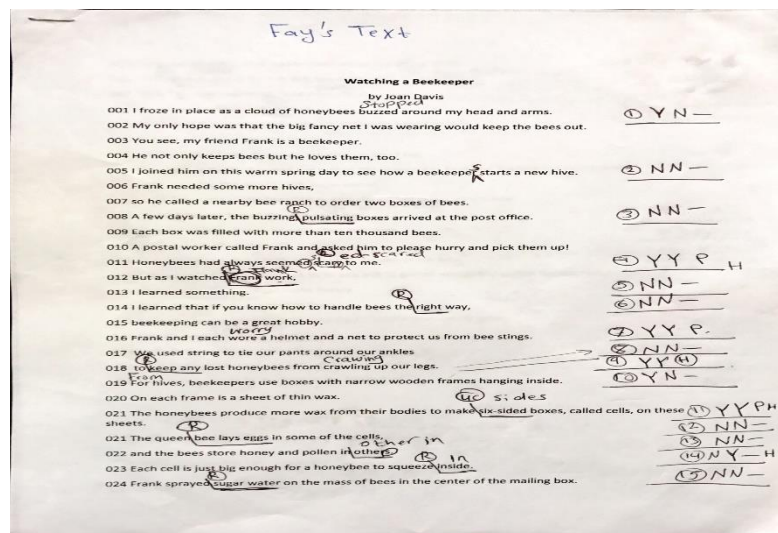 Fay's Text
Watching a Beekeeper
by Joan Davis
stopped
001 I froze in place as a cloud of honeybees buzzed around my head and arms. ① Y N —
002 My only hope was that the big fancy net I was wearing would keep the bees out.
003 You see, my friend Frank is a beekeeper.
004 He not only keeps bees but he loves them, too.
s
005 I joined him on this warm spring day to see how a beekeeper starts a new hive. ② NN —
006 Frank needed some more hives,
007 so he called a nearby bee ranch to order two boxes of bees.
R
008 A few days later, the buzzing, pulsating boxes arrived at the post office. ③ NN —
009 Each box was filled with more than ten thousand bees.
010 A postal worker called Frank and asked him to please hurry and pick them up!
ed scared
011 Honeybees had always seemed scary to me. ④ Y Y P H
012 But as I watched Frank work, ⑤ NN —
013 I learned something. ⑥ NN —
R
014 I learned that if you know how to handle bees the right way,
015 beekeeping can be a great hobby.
worry
016 Frank and I each wore a helmet and a net to protect us from bee stings. ⑦ Y Y P.
017 We used string to tie our pants around our ankles ⑧ NN —
R Crawing
018 to keep any lost honeybees from crawling up our legs. ⑨ YY H
From
019 For hives, beekeepers use boxes with narrow wooden frames hanging inside. ⑩ YN —
020 On each frame is a sheet of thin wax.
uc sides
021 The honeybees produce more wax from their bodies to make six-sided boxes, called cells, on these ⑪ Y Y P H
sheets. ⑫ NN —
R
021 The queen bee lays eggs in some of the cells, ⑬ NN —
other in
022 and the bees store honey and pollen in others. ⑭ N Y — H
R in
023 Each cell is just big enough for a honeybee to squeeze inside.
R
024 Frank sprayed sugar water on the mass of bees in the center of the mailing box. ⑮ NN —